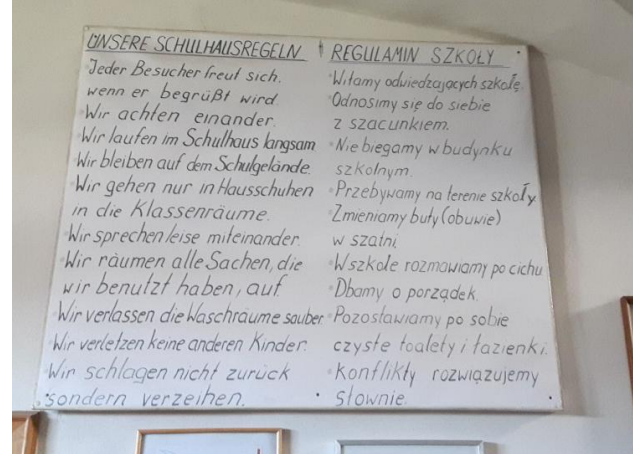 UNSERE SCHULHAUSREGELN
Jeder Besucher freut sich.
wenn er begrüßt wird.
Wir achten einander.
Wir laufen im Schulhaus langsam
Wir bleiben auf dem Schulgelände.
Wir gehen nur in Hausschuhen
in die Klassenräume.
Wir sprechen leise miteinander.
Wir räumen alle Sachen, die
wir benutzt haben, auf.
Wir verlassen die Waschräume sauber
Wir verletzen keine anderen Kinder.
Wir schlagen nicht zurück
sondern verzeihen.
REGULAMIN SZKOŁY
Witamy odwiedzających szkołę.
Odnosimy się do siebie
z szacunkiem.
Nie biegamy w budynku
szkolnym.
Przebywamy na terenie szkoły.
Zmieniamy buty (obuwie)
w szatni.
W szkole rozmawiamy po cichu
Dbamy o porządek.
Pozostawiamy po sobie
czyste toalety i łazienki.
Konflikty rozwiązujemy
słownie.